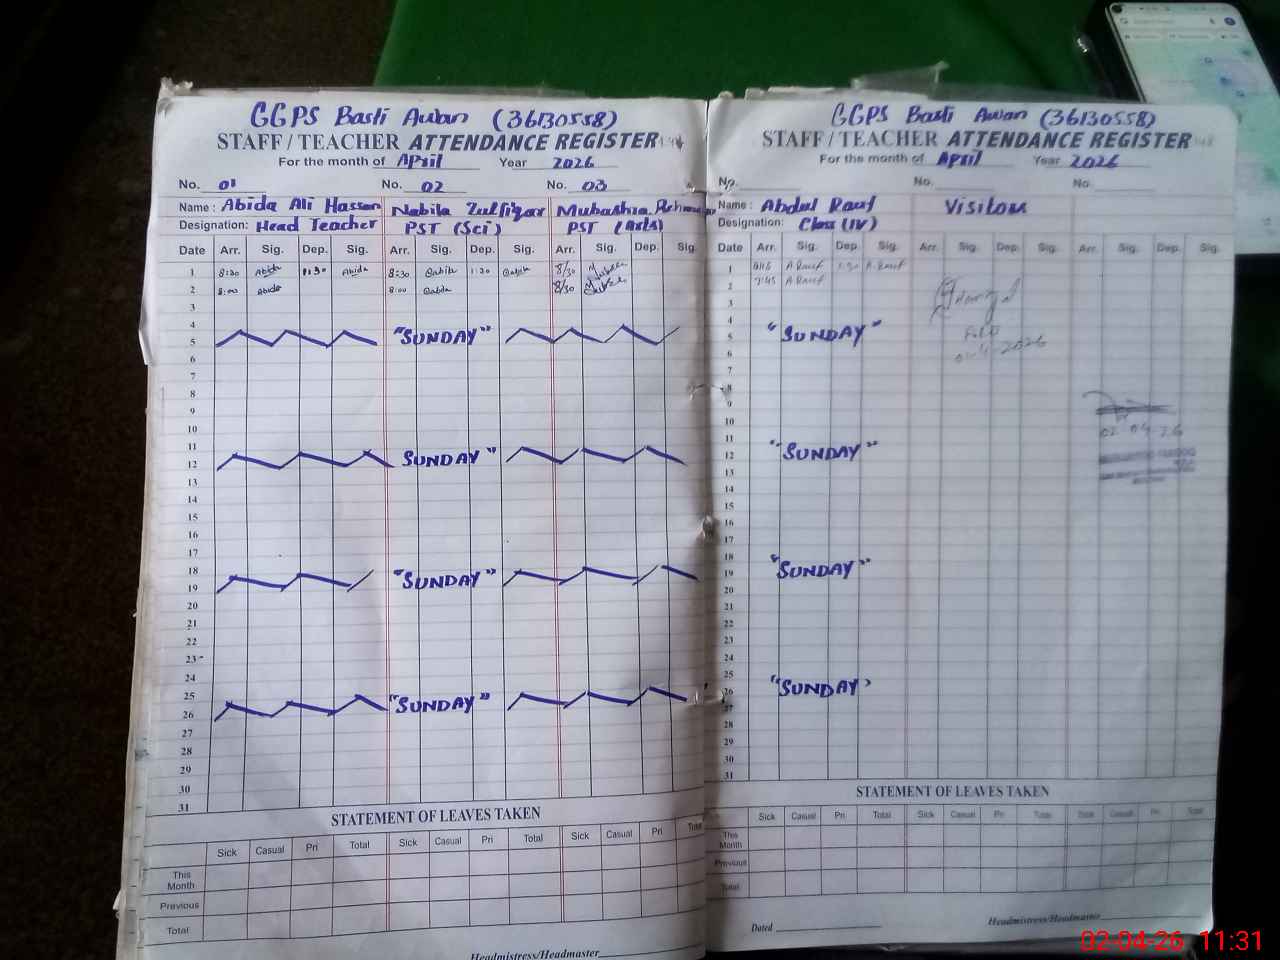 GGPS Basti Awan (36130558)
STAFF / TEACHER ATTENDANCE REGISTER
For the month of April Year 2026
No. 01 No. 02 No. 03
Name : Abida Ali Hassan Nabila Zulfiqar Mubashra
Designation: Head Teacher PST (Sci) PST (Arts)
Date Arr. Sig. Dep. Sig. Arr. Sig. Dep. Sig. Arr. Sig. Dep. Sig.
1 8:30 Abida 1:30 Abida 8:30 Nabila 1:30 Nabila 8/30
2 8:00 Abida 8:00 Nabila 8/30
3
4
5 "SUNDAY"
6
7
8
9
10
11
12 SUNDAY"
13
14
15
16
17
18
19 "SUNDAY"
20
21
22
23
24
25
26 "SUNDAY"
27
28
29
30
31
STATEMENT OF LEAVES TAKEN
Sick Casual Pri Total Sick Casual Pri Total Sick Casual Pri Total
This Month
Previous
Total
Headmistress/Headmaster
GGPS Basti Awan (36130558)
STAFF / TEACHER ATTENDANCE REGISTER
For the month of April Year 2026
No. No. No.
Name : Abdul Rauf Visitors
Designation: Class (IV)
Date Arr. Sig. Dep. Sig. Arr. Sig. Dep. Sig. Arr. Sig. Dep. Sig.
1 A Rauf 1:30 A Rauf
2 7:45 A Rauf
3
4
5 "SUNDAY"
6
7
8
9
10
02-04-26
11
12 "SUNDAY"
13
14
15
16
17
18
19 "SUNDAY"
20
21
22
23
24
25
26 "SUNDAY"
27
28
29
30
31
STATEMENT OF LEAVES TAKEN
Sick Casual Pri Total Sick Casual Pri Total Sick Casual Pri Total
This Month
Previous
Total
Dated Headmistress/Headmaster
02-04-26 11:31